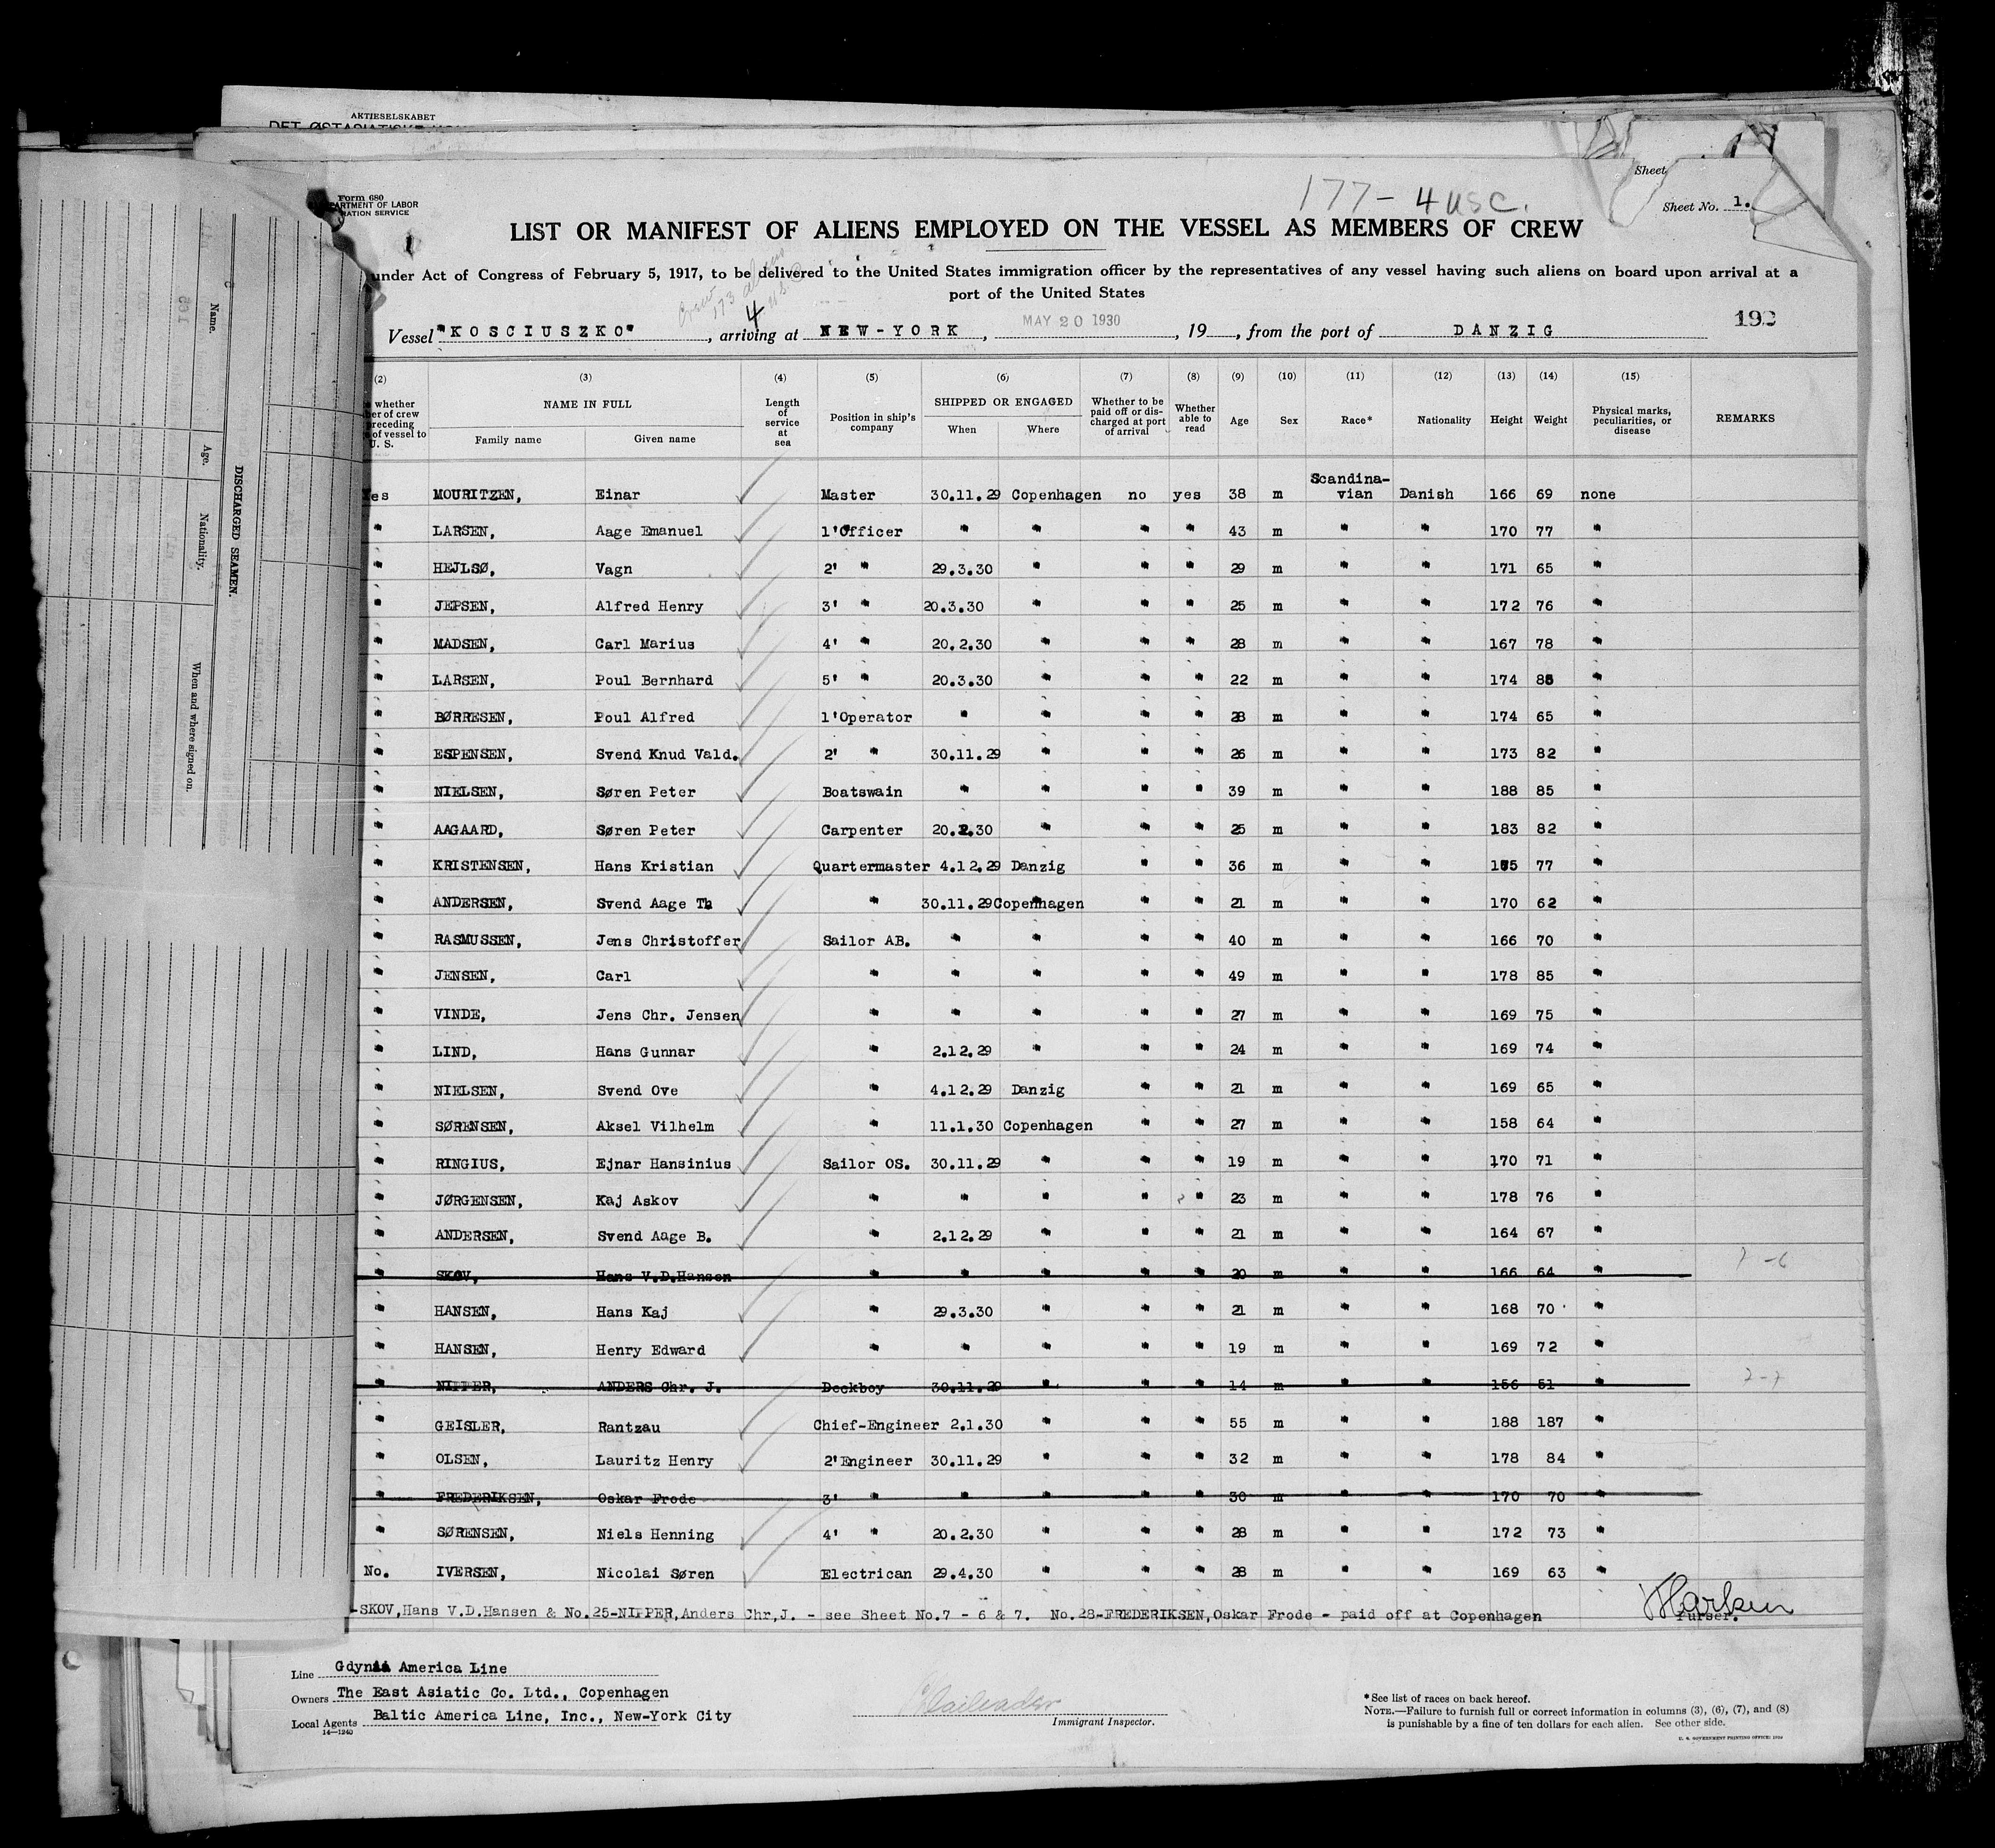 AKTIESELSKABET
Sheet
177- 4 USC.
Form 680
DEPARTMENT OF LABOR
IMMIGRATION SERVICE
Sheet No. 1.
LIST OR MANIFEST OF ALIENS EMPLOYED ON THE VESSEL AS MEMBERS OF CREW
under Act of Congress of February 5, 1917, to be delivered to the United States immigration officer by the representatives of any vessel having such aliens on board upon arrival at a
port of the United States
Crew
173 aliens
4 U S C
Vessel "KOSCIUSZKO", arriving at NEW-YORK, MAY 20 1930, 19__, from the port of DANZIG
192
(2) (3) (4) (5) (6) (7) (8) (9) (10) (11) (12) (13) (14) (15)
whether
of crew
preceding
of vessel to
U. S.
NAME IN FULL
Family name Given name
Length
of
service
at
sea
Position in ship's
company
SHIPPED OR ENGAGED
When Where
Whether to be
paid off or dis-
charged at port
of arrival
Whether
able to
read
Age Sex Race* Nationality Height Weight
Physical marks,
peculiarities, or
disease
REMARKS
Yes MOURITZEN, Einar Master 30.11.29 Copenhagen no yes 38 m Scandina-vian Danish 166 69 none
" LARSEN, Aage Emanuel 1'Officer " " " " 43 m " " 170 77 "
" HEJLSØ, Vagn 2' " 29.3.30 " " " 29 m " " 171 65 "
" JEPSEN, Alfred Henry 3' " 20.3.30 " " " 25 m " " 172 76 "
" MADSEN, Carl Marius 4' " 20.2.30 " " " 28 m " " 167 78 "
" LARSEN, Poul Bernhard 5' " 20.3.30 " " " 22 m " " 174 "
" BØRRESEN, Poul Alfred 1'Operator " " " " 28 m " " 174 65 "
" ESPENSEN, Svend Knud Vald. 2' " 30.11.29 " " " 26 m " " 173 82 "
" NIELSEN, Søren Peter Boatswain " " " " 39 m " " 188 85 "
" AAGAARD, Søren Peter Carpenter 20.2.30 " " " 25 m " " 183 82 "
" KRISTENSEN, Hans Kristian Quartermaster 4.12.29 Danzig " " 36 m " " 77 "
" ANDERSEN, Svend Aage Th " 30.11.29 Copenhagen " " 21 m " " 170 62 "
" RASMUSSEN, Jens Christoffer Sailor AB. " " " " 40 m " " 166 70 "
" JENSEN, Carl " " " " " 49 m " " 178 85 "
" VINDE, Jens Chr. Jensen " " " " " 27 m " " 169 75 "
" LIND, Hans Gunnar " 2.12.29 " " " 24 m " " 169 74 "
" NIELSEN, Svend Ove " 4.12.29 Danzig " " 21 m " " 169 65 "
" SØRENSEN, Aksel Vilhelm " 11.1.30 Copenhagen " " 27 m " " 158 64 "
" RINGIUS, Ejnar Hansinius Sailor OS. 30.11.29 " " " 19 m " " 170 71 "
" JØRGENSEN, Kaj Askov " " " " " 23 m " " 178 76 "
" ANDERSEN, Svend Aage B. " 2.12.29 " " " 21 m " " 164 67 "
" SKOV, Hans V.D.Hansen " " " " " 20 m " " 166 64 " 7-6
" HANSEN, Hans Kaj " 29.3.30 " " " 21 m " " 168 70 "
" HANSEN, Henry Edward " " " " " 19 m " " 169 72 "
" NIPPER, ANDERS Chr. J. Deckboy 30.11.29 " " " 14 m " " 156 51 " 7-7
" GEISLER, Rantzau Chief-Engineer 2.1.30 " " " 55 m " " 188 187 "
" OLSEN, Lauritz Henry 2'Engineer 30.11.29 " " " 32 m " " 178 84 "
" FREDERIKSEN, Oskar Frode 3' " " " " " 30 m " " 170 70 "
" SØRENSEN, Niels Henning 4' " 20.2.30 " " " 28 m " " 172 73 "
No. IVERSEN, Nicolai Søren Electrican 29.4.30 " " " 28 m " " 169 63 "
-SKOV,Hans V.D.Hansen & No.25-NIPPER,Anders Chr,J. - see Sheet No.7 - 6 & 7. No.28-FREDERIKSEN,Oskar Frode - paid off at Copenhagen
Purser.
Line Gdynia America Line
Owners The East Asiatic Co. Ltd., Copenhagen
Local Agents Baltic America Line, Inc., New-York City
14-1240
Immigrant Inspector.
*See list of races on back hereof.
NOTE.—Failure to furnish full or correct information in columns (3), (6), (7), and (8)
is punishable by a fine of ten dollars for each alien. See other side.
U. S. GOVERNMENT PRINTING OFFICE
DISCHARGED SEAMEN.
Name. Age. Nationality. When and where signed on.